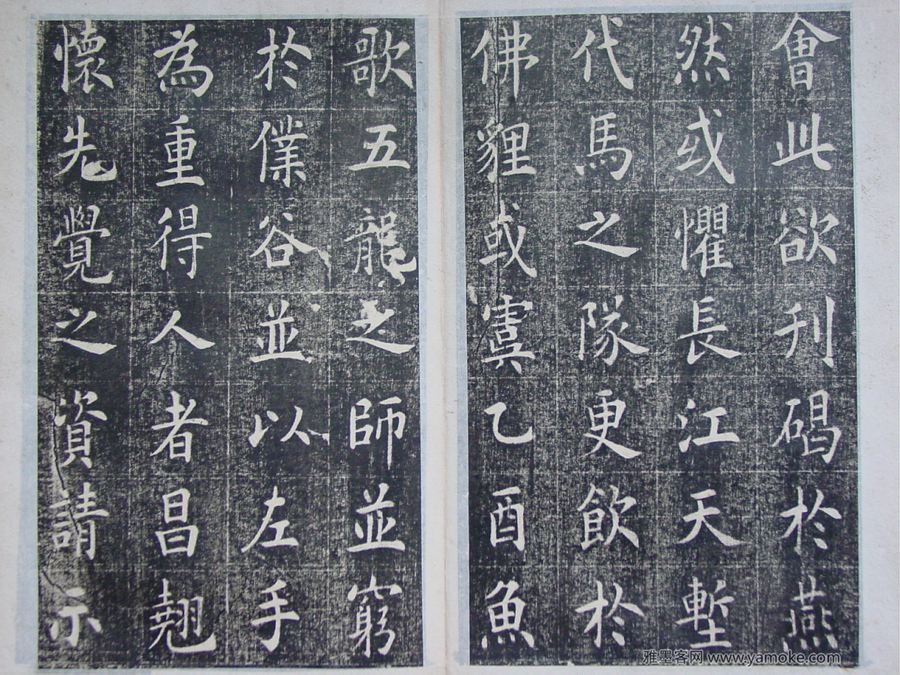 會此欲刋碣於燕
然或懼長江天塹
代馬之隊更飲於
佛貍或虞乙酉魚
歌五龍之師並窮
於僕谷並以左手
為重得人者昌翹
懷先覺之資請示
雅墨客网 www.yamoke.com